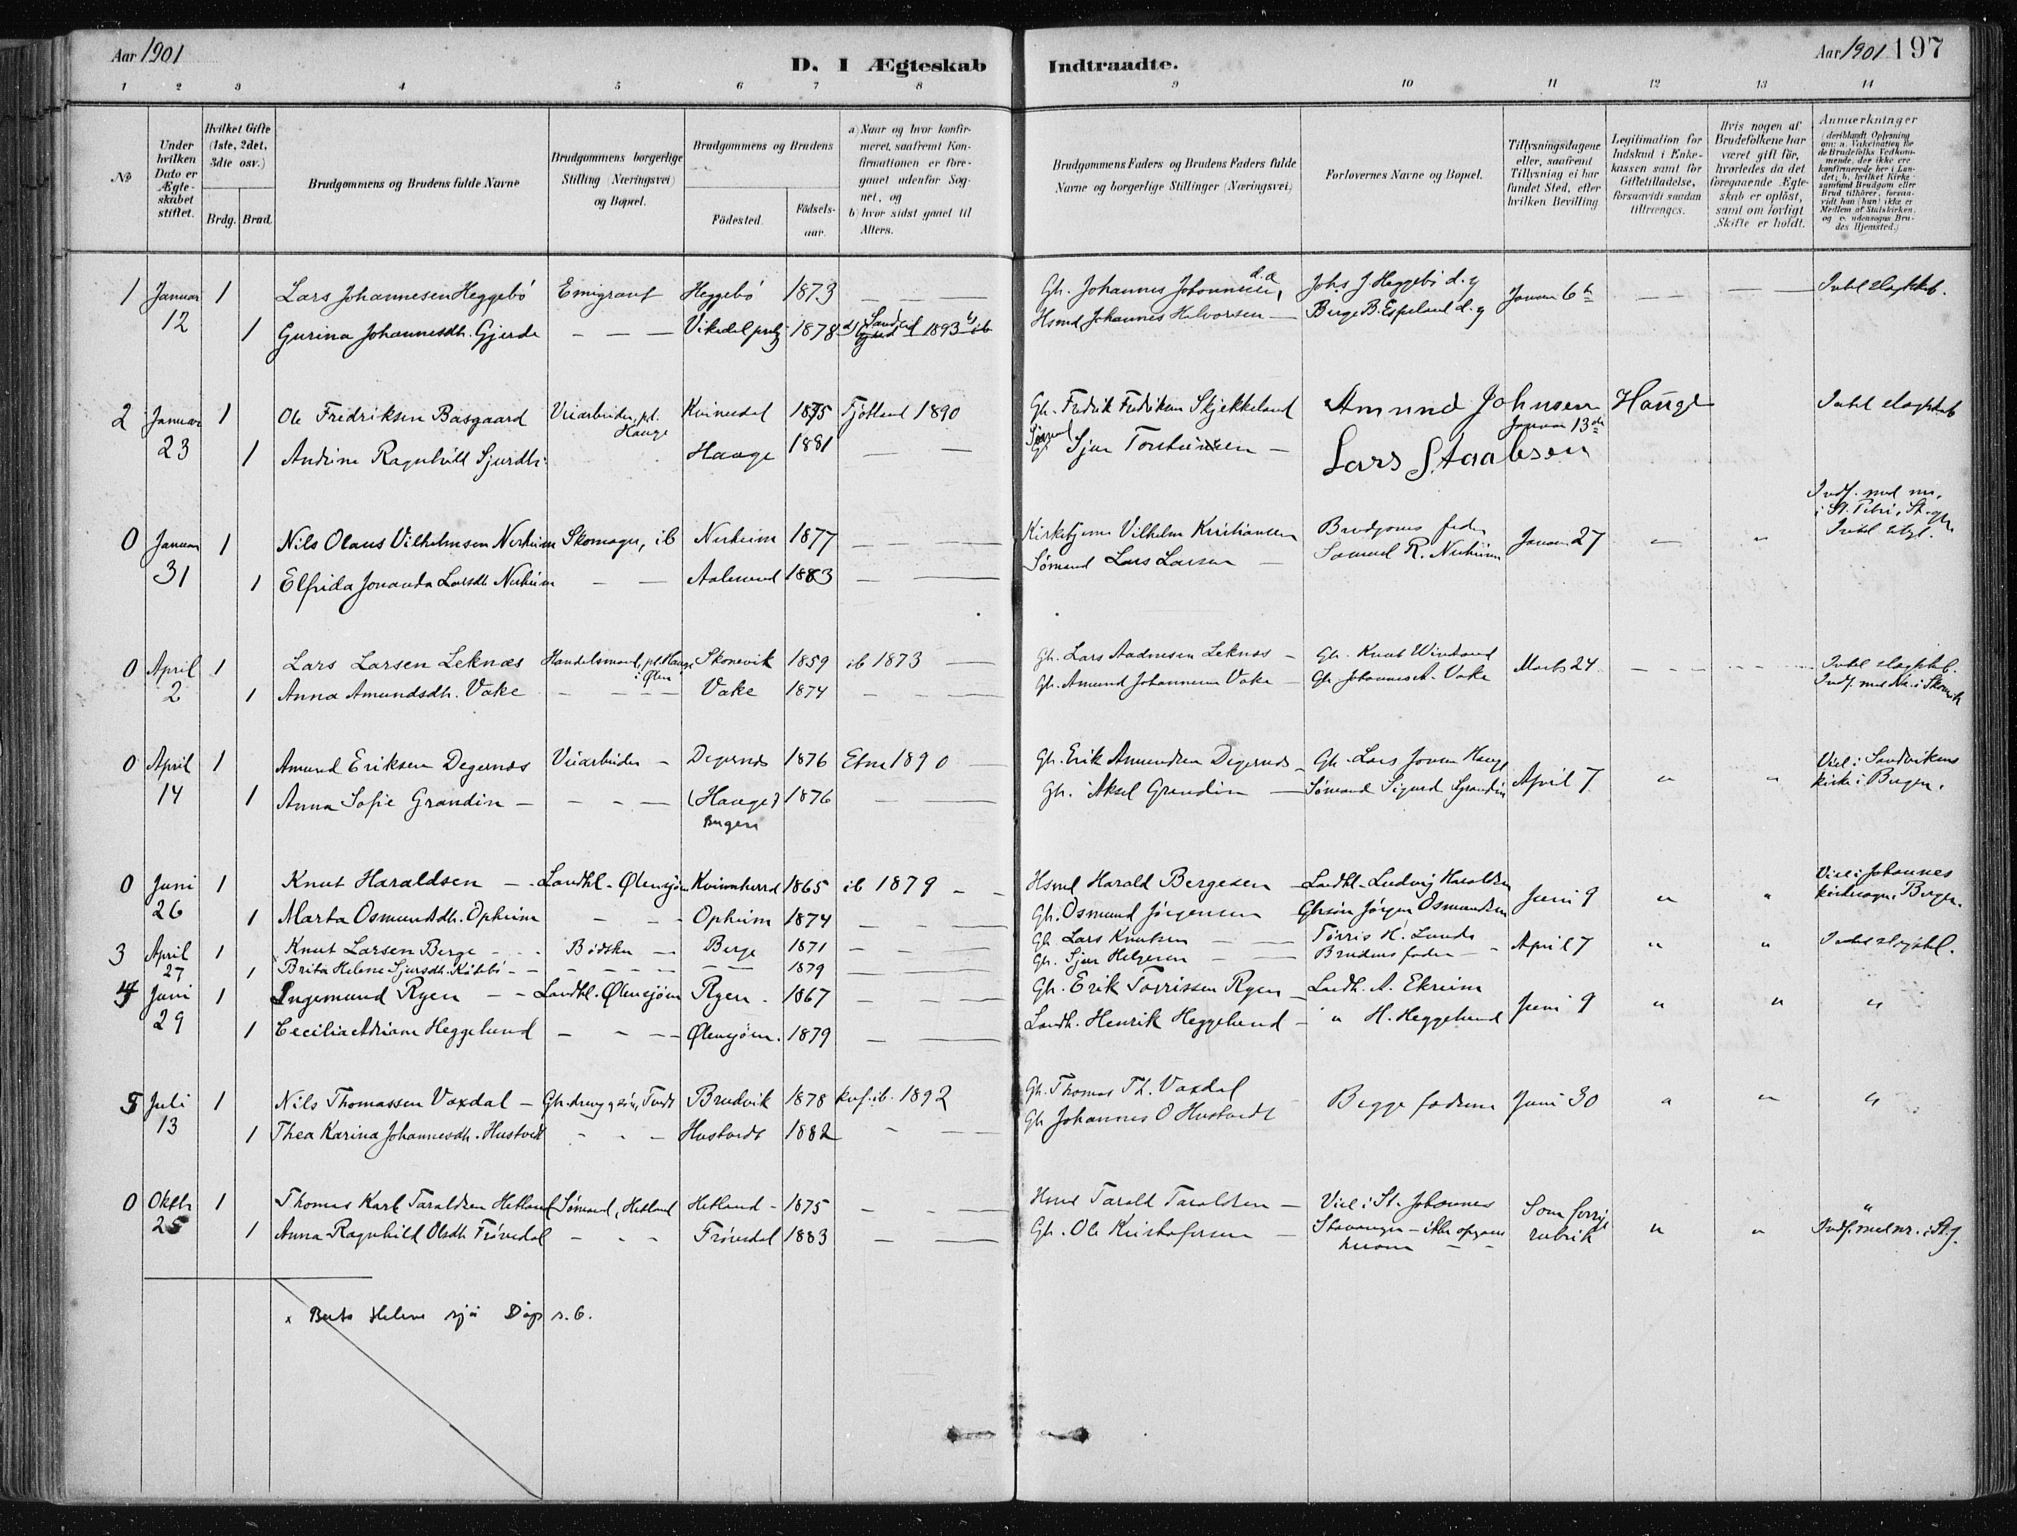 Aar 1901
D. I Ægteskab Indtraadte.
Aar 1901 197
1 2 3 4 5 6 7 8 9 10 11 12 13 14
No
Under hvilken Dato er Ægteskabet stiftet.
Hvilket Gifte (1ste, 2det, 3dte osv.)
Brdg. Brud.
Brudgommens og Brudens fulde Navne
Brudgommens borgerlige Stilling (Næringsvei) og Bopæl.
Brudgommens og Brudens
Fødested. Fødselsaar.
a) Naar og hvor konfirmeret, saafremt Konfirmationen er foregaaet udenfor Sognet, og
b) hvor sidst gaaet til Alters.
Brudgommens Faders og Brudens Faders fulde Navne og borgerlige Stillinger (Næringsvei)
Forlovernes Navne og Bopæl.
Tillysningsdagene eller, saafremt Tillysning ei har fundet Sted, efter hvilken Bevilling
Legitimation for Indskud i Enkekassen samt for Giftetilladelse, forsaavidt saadan tiltrænges.
Hvis nogen af Brudefolkene har været gift før, hvorledes da det foregaaende Ægteskab er opløst, samt om lovligt Skifte er holdt.
Anmærkninger
(deriblandt Oplysning om: a. Vaccination for de Brudefolks Vedkommende, der ikke ere konfirmerede her i Landet; b. hvilket Kirkesamfund Brudgom eller Brud tilhører, forsaavidt han (hun) ikke er Medlem af Statskirken, og c. udensogns Brudes Hjemsted.)
1 Januar 1 Lars Johannesen Heggebø Emigrant Heggebø 1873 — — Gh. Johannes Johannesen, d.æ Johs J Heggebø d. y Januar 6te — — Intet slagtskb.
12 1 Gurina Johannesdh. Gjerde — — Vikedal 1878 1893 Hsmd Johannes Halvorsen — Berge B. Espeland d. y
2 Januar 1 Ole Fredriksen Basgaard Veiarbeider, pt. Hauge Kvinesdal 1875 Fjotland 1890 Gh. Fredrik Fredriksen Skjekkeland Amund Johnsen Hauge Januar 13de Intet slagtskab
23 1 Andrine Ragnhild Sjursdtr. Haage 1881 — — Sjur — Lars Staalesen
0 Januar 1 Nils Olaus Vilhelmsen Nerheim Skomager, ib Nerheim 1877 — — Kirketjener Vilhelm Kristiansen Brudgoms fader Januar 27 — " Indf. med nr. i St. Petri, Stvgr. Intet slgt.
31 1 Elfrida Jonanda Larsdh Nerheim — — Aalesund 1883 — — Sømand Lars Larsen — Samuel R. Nerheim
0 April 1 Lars Larsen Leknæs Handelsmand, pt. Hauge i Ølen Skonevik 1859 ib 1873 — Gh. Lars Aadnesen Leknæs — Gh. Knut Marts 24 — — Intet slagtskb.
2 1 Anna Amundsdh. Vake — — — Vake 1874 — — Gh. Amund Johannesen Vake — Gh Johannes A. Vake Indf. med No. i Skonevik
0 April 1 Amund Eriksen Degernes Veiarbeider — Degernes 1876 Etne 1890 — Gh. Erik Amundsen Degernes — Gh. Lars Hauge April 7 " " Viet i Sandvikens
14 1 Anna Sofie Grandin — — — (Haage) Bergen 1876 — — Gh. Aksel Grandin — Sømand Sigurd Grandin kirke i Bergen.
0 Juni 1 Knut Haraldsen — Landhl. Ølensjøen Kvinnherred 1865 ib 1879 — — Hsmd Harald Bergesen — Landhl. Ludvig Haraldsen Juni 9 " " Viet i Johannes
26 1 Marta Osmundsdh. Opheim — — Opheim 1874 — — Gh. Osmund Jørgensen Ghsøn Jørgen Osmundsen kirkesogn, Bergen.
3 April 1 Knut Larsen Berge — Bødker — Berge 1871 — — Gh. Lars Knutsen — Tørris H. Lunde — April 7 " " Intet slagtsk.
27 1 Brita Helene Sjursdh. — — — 1879 Gh. Sjur Helgesen — Brudens fader
4 Juni 1 Ingemund Ryen — — Landhl. Ølensjøen Ryen. 1867 — — Gh. Erik Tørrissen Ryen — Landh. A. Ekreim Juni 9 " " "
29 1 Cecilia Adriane Heggelund — — — Ølensjøen. 1879 — — Landh. Henrik Heggelund — " H. Heggelund
5 Juli 1 Nils Thomassen Vaxdal — Brudvik 1878 kof. ib. 1892 Gh. Thomas Th. Vaxdal Begge fædrene Juni 30 " " "
13 1 Thea Karina Johannesdh. Hustvedt — — — Hustvedt 1882 — — Gh Johannes O Hustvedt
0 Oktbr 1 Thomas Karl Taraldsen Hetland Sømand, Hetland Hetland — 1875 — — Hsmd Tarald Taraldsen — Viet i St. Johannes Som forrige "
25 1 Anna Ragnhild Olsdh Frøvedal — — Frøvedal 1883 — — Gh. Ole Kristofersen — Stavanger — ikke opgivet hvem — — rubrik " " Indf. med nr. i Stvgr.
x Berta Helene sjå Dåp s. 6.